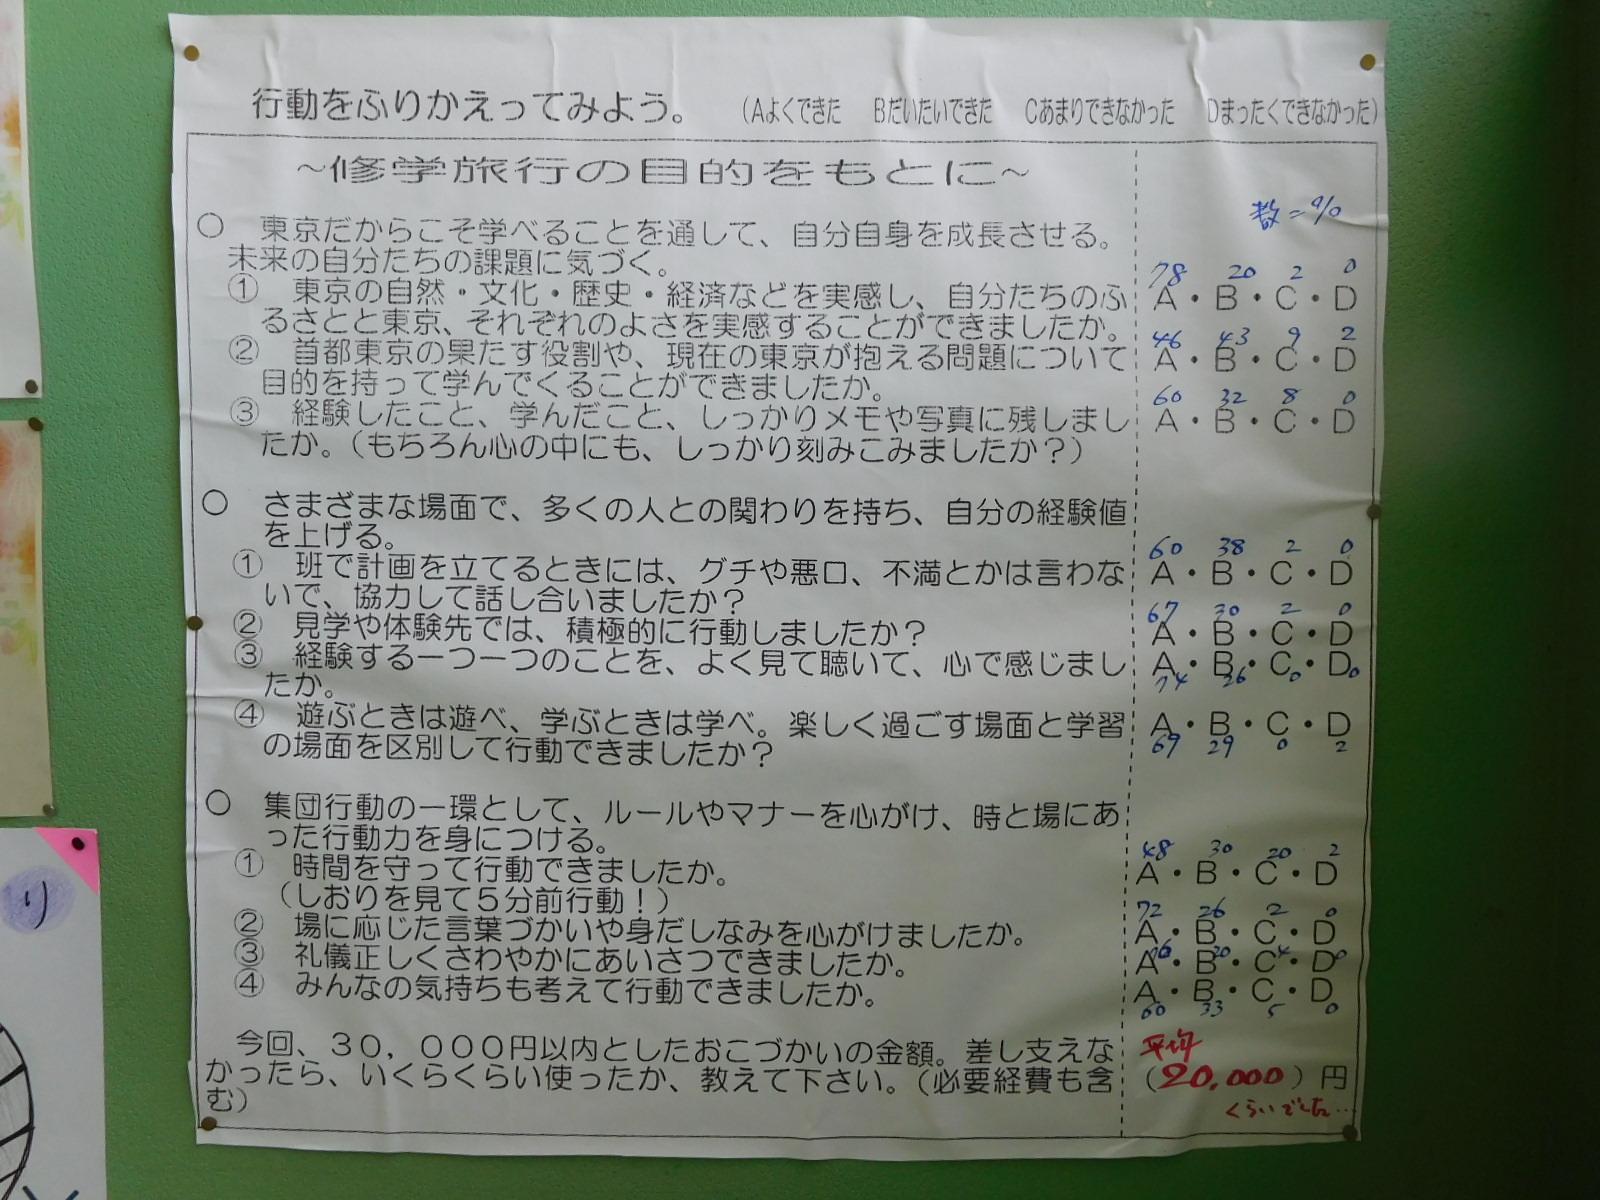 行動をふりかえってみよう。　（Aよくできた　Bだいたいできた　Cあまりできなかった　Dまったくできなかった）
～修学旅行の目的をもとに～
数＝％
○　東京だからこそ学べることを通して、自分自身を成長させる。
未来の自分たちの課題に気づく。
78 20 2 0
①　東京の自然・文化・歴史・経済などを実感し、自分たちのふ　A・B・C・D
るさとと東京、それぞれのよさを実感することができましたか。
46 43 9 2
②　首都東京の果たす役割や、現在の東京が抱える問題について　A・B・C・D
目的を持って学んでくることができましたか。
60 32 8 0
③　経験したこと、学んだこと、しっかりメモや写真に残しまし　A・B・C・D
たか。（もちろん心の中にも、しっかり刻みこみましたか？）
○　さまざまな場面で、多くの人との関わりを持ち、自分の経験値
を上げる。
60 38 2 0
①　班で計画を立てるときには、グチや悪口、不満とかは言わな　A・B・C・D
いで、協力して話し合いましたか？
67 30 2 0
②　見学や体験先では、積極的に行動しましたか？　A・B・C・D
③　経験する一つ一つのことを、よく見て聴いて、心で感じまし　A・B・C・D
たか。
74 26 0 0
④　遊ぶときは遊べ、学ぶときは学べ。楽しく過ごす場面と学習　A・B・C・D
の場面を区別して行動できましたか？
69 29 0 2
○　集団行動の一環として、ルールやマナーを心がけ、時と場にあ
った行動力を身につける。
48 30 20 2
①　時間を守って行動できましたか。　A・B・C・D
（しおりを見て５分前行動！）
72 26 2 0
②　場に応じた言葉づかいや身だしなみを心がけましたか。　A・B・C・D
20 4 0
③　礼儀正しくさわやかにあいさつできましたか。　A・B・C・D
④　みんなの気持ちも考えて行動できましたか。　A・B・C・D
60 33 5 0
今回、３０，０００円以内としたおこづかいの金額。差し支えな
平均
かったら、いくらくらい使ったか、教えて下さい。（必要経費も含　（20,000）円
む）
くらいでした…
り